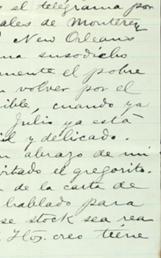 o al telegrama por
ales de Monterey
New Orleans
una susodicho
mente el pobre
n volver por el
sible, cuando ya
Julio ya está
il y delicado.
n abrazo de mi
vitado el gregorito.
n de la carta de
hablado para
se stock sea rea
creo tiene